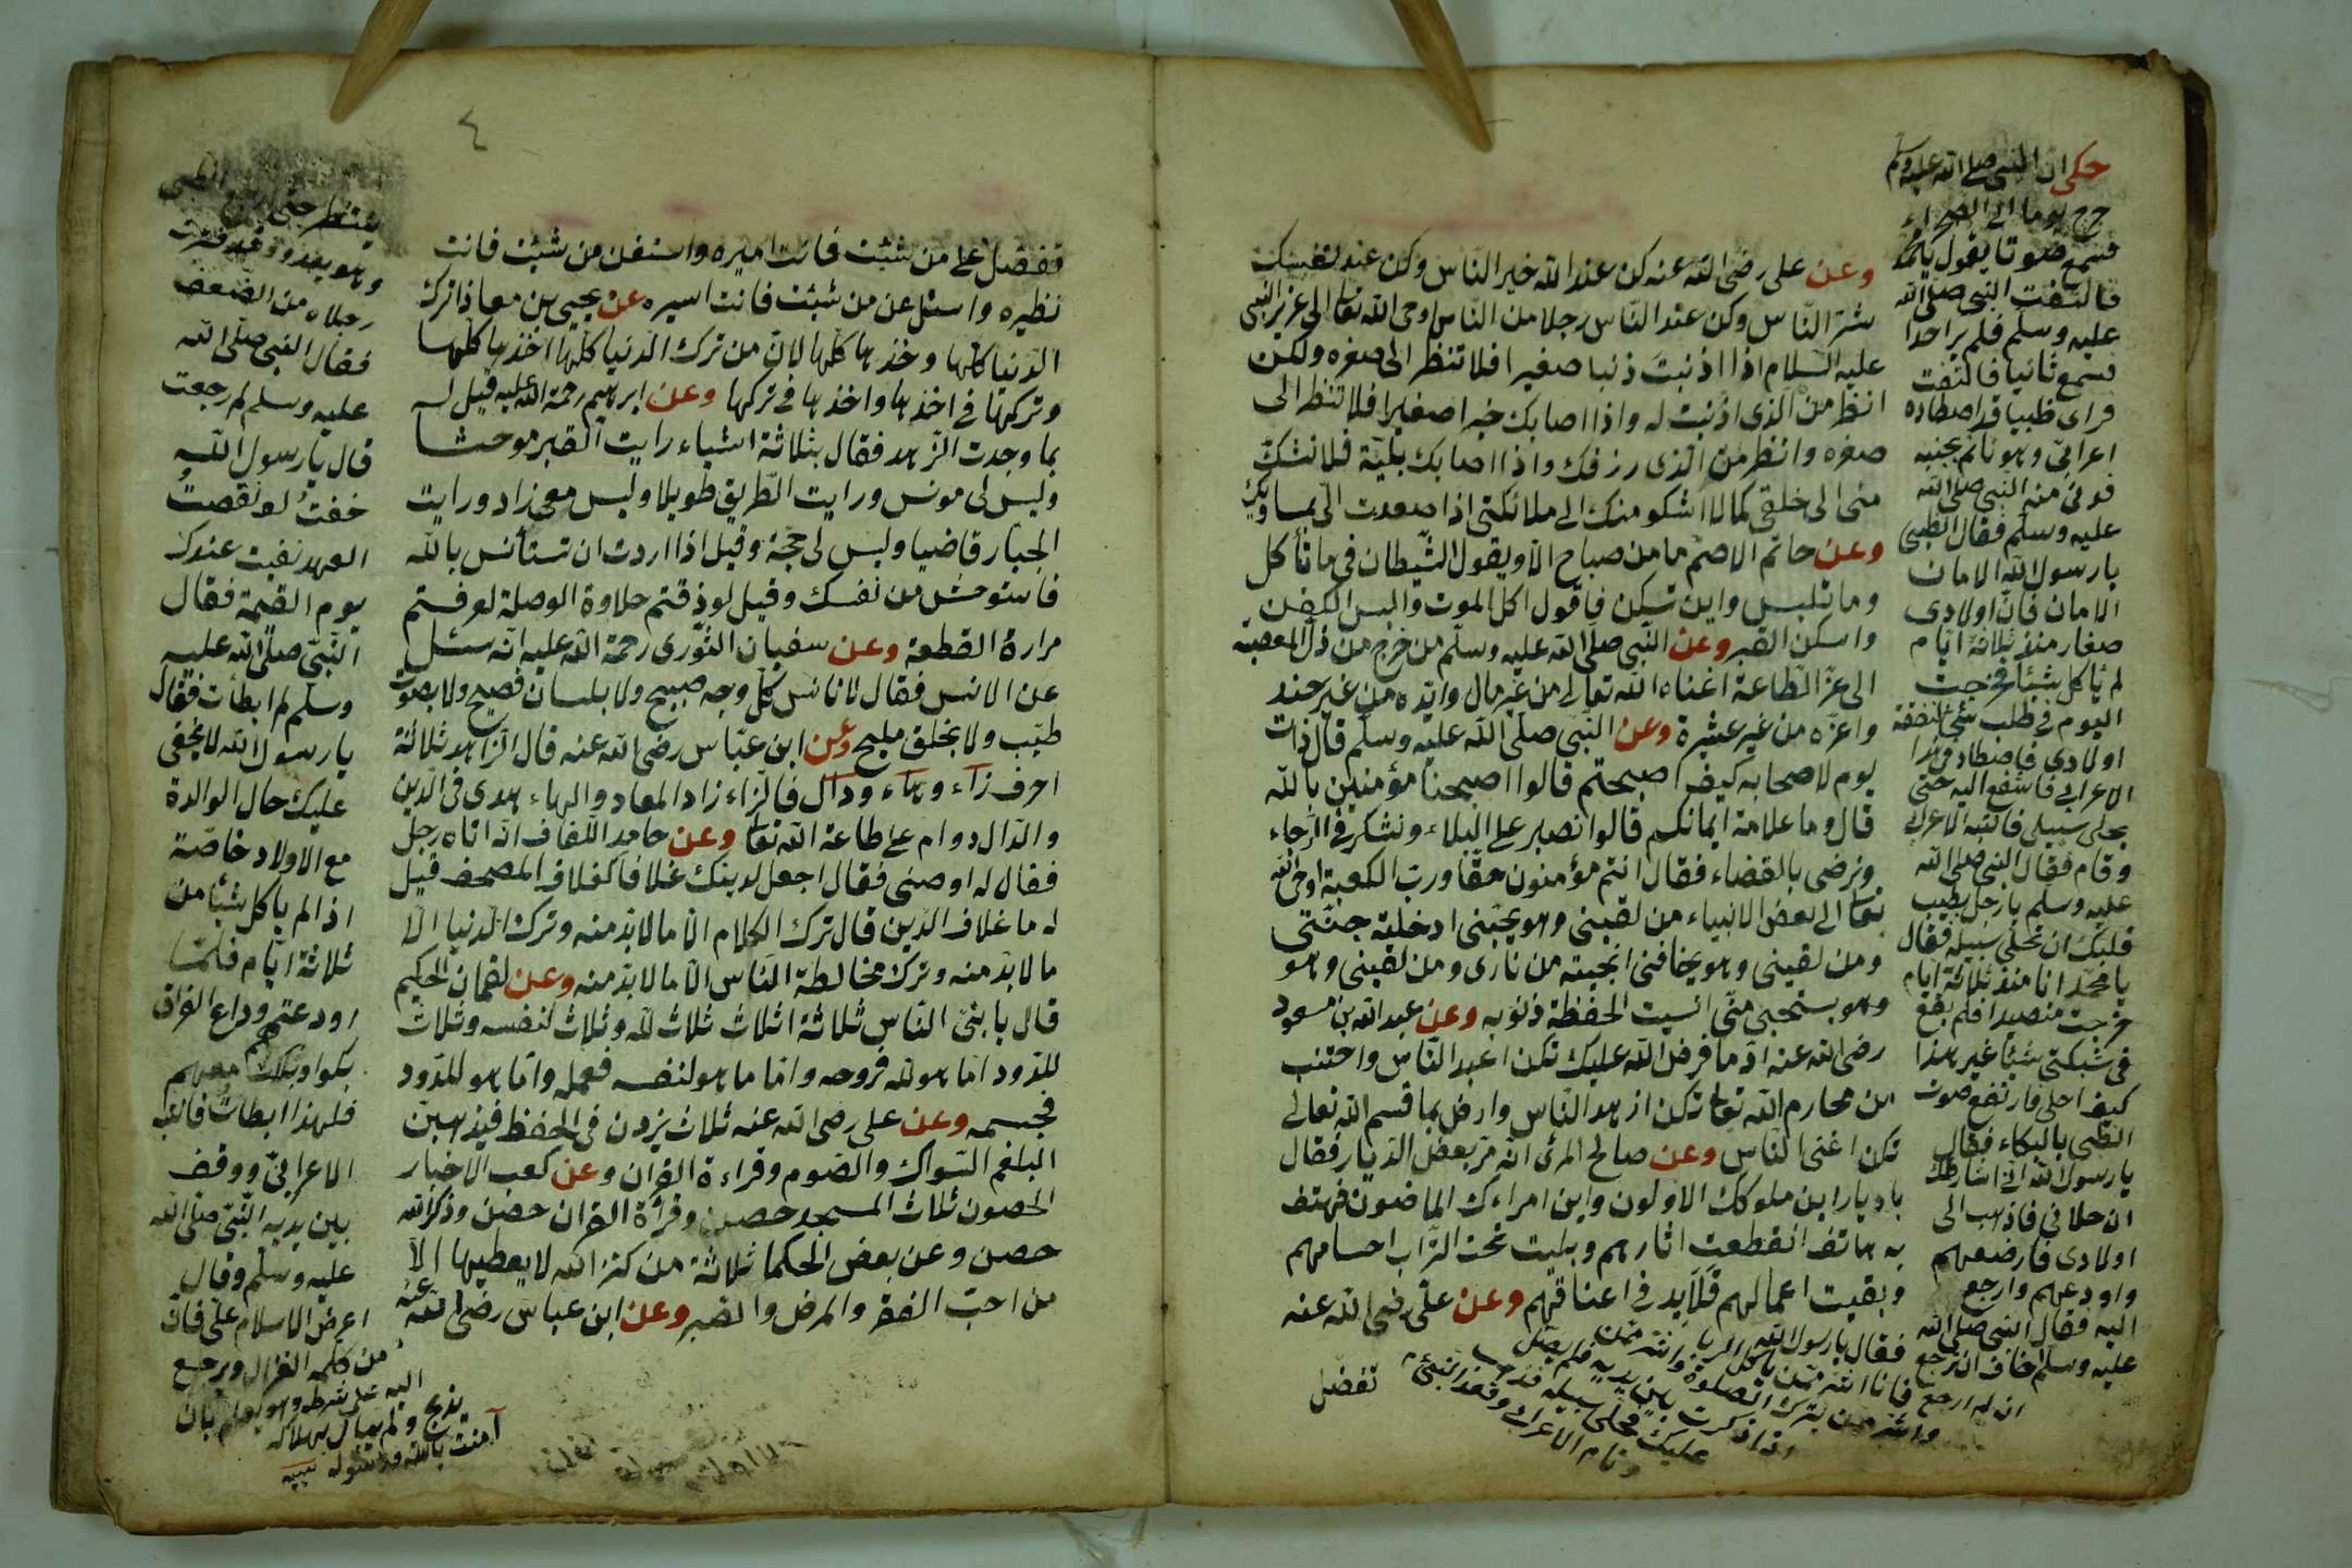 وعن على رضى الله عنه كن عند الله خير الناس وكن عند نفسك
شر الناس وكن عند الناس رجلا من الناس اوحى الله تعا الى عزير النبى
عليه السلام اذا اذنبت ذنبا صغيرا فلا تنظر الى صغره ولكن
انظر من الذى اذنبت له واذا اصابك خير اصغيرا فلا تنظر الى
صغره وانظر من الذى رزقك واذا اصابك بلية فلا تشك
منى الى خلقى كما لا اشكو منك الى ملائكتى اذا صعدت الى مساويك
وعن حاتم الاصم ما من صباح الا ويقول الشيطان لى ما تأكل
وما تلبس واين تسكن فاقول اكل الموت والبس الكفن
واسكن القبر وعن النبى صلى الله عليه وسلم من خرج من ذل المعصية
الى عز الطاعة اغناه الله تعالى من غير مال وايده من غير جند
واعزه من غير عشيرة وعن النبى صلى الله عليه وسلم قال ذات
يوم لاصحابه كيف اصبحتم قالوا اصبحنا مؤمنين بالله
قال وما علامة ايمانكم قالوا نصبر على البلاء ونشكر فى الرخاء
ونرضى بالقضاء فقال انتم مؤمنون حقا ورب الكعبة اوحى الله
تعا الى بعض الانبياء من لقينى وهو يحبنى ادخلته جنتى
ومن لقينى وهو يخافنى انجيته من نارى ومن لقينى وهو
وهو يستحيى منى انسيت الحفظة ذنوبه وعن عبد الله بن مسعود
رضى الله عنه اد ما فرض الله عليك تكن اعبد الناس واجتنب
من محارم الله تعا تكن ازهد الناس وارض بما قسم الله تعالى
تكن اغنى الناس وعن صالح المرى انه مر ببعض الديار فقال
يا ديار اين ملوكك الاولون واين امراءك الماضون فهتف
به هاتف انقطعت اثارهم وبليت تحت التراب اجسامهم
وبقيت اعمالهم قلايد فى اعناقهم وعن على رضى الله عنه
تفضل
حكى ان النبى صلى الله عليه وسلم
خرج يوما الى الصحراء
فسمع صوتا يقول يا محمد
فالتفت النبى صلى الله
عليه وسلم فلم ير احدا
فسمع ثانيا فالتفت
فراى ظبيا قد اصطاده
اعرابى وهو نائم بجنبه
فدنى من النبى صلى الله
عليه وسلم فقال الظبى
يا رسول الله الامان
الامان فان اولادى
صغار منذ ثلاثة ايام
لم تأكل شيئا فخرجت
اليوم فى طلب شئ لنفقة
اولادى فاصطادنى هذا
الاعرابى فاشفع اليه حتى
يخلى سبيلى فانتبه الاعرابى
وقام فقال النبى صلى الله
عليه وسلم يا رجل يطيب
قلبك ان تخلى سبيله فقال
يا محمد انا منذ ثلاثة ايام
خرجت متصيدا فلم يقع
فى شبكتى شيئا غير هذا
كيف اخلى فارتفع صوت
الظبى بالبكاء فقال
يا رسول الله انى اشارطك
ان خلانى فاذهب الى
اولادى فارضعهم
واودعهم وارجع
اليه فقال النبى صلى الله
عليه وسلم اخاف ان لا ترجع
فقال يا رسول الله
ان لم ارجع فانا اشر من ياكل الربا واشر من
واشر من يترك الصلوة بين يديه فلم يصل
ان ذكرت
عليك فخلى سبيله فذهب
ونام الاعرابى وقعد النبى
٤
تفضل على من شئت فانت اميره واستغن من شئت فانت
نظيره واسئل عن من شئت فانت اسيره عن يحيى بن معاذ اترك
الدنيا كلها وخذها كلها لان من ترك الدنيا كلها اخذها كلها
وتركها فى اخذها واخذها فى تركها وعن ابرهيم رحمة الله عليه قيل له
بما وجدت الزهد فقال بثلاثة اشياء رايت القبر موحشا
وليس لى مونس ورايت الطريق طويلا وليس معى زاد ورايت
الجبار قاضيا وليس لى حجة وقيل اذا اردت ان تستأنس بالله
فاستوحش من نفسك وقيل لو ذقتم حلاوة الوصلة لعرفتم
مرارة القطعة وعن سفيان الثورى رحمة الله عليه انه سئل
عن الانس فقال لا تانس كل وجه صبيح ولا بلسان فصيح ولا بصوت
طيب ولا بخلق مليح وعن ابن عباس رضى الله عنه قال الزاهد ثلاثة
احرف زاء وهاء ودال فالزاء زاد المعاد والهاء هدى فى الدين
والدال دوام على طاعة الله تعا وعن حامد اللفاف انه اتاه رجل
فقال له اوصنى فقال اجعل لدينك غلافا كغلاف المصحف قيل
له ما غلاف الدين قال ترك الكلام الا ما لابد منه وترك الدنيا الا
ما لابد منه وترك مخالطة الناس الا ما لابد منه وعن لقمان الحكيم
قال يا بنى الناس ثلاثة اثلاث ثلاث لله وثلاث لنفسه وثلاث
للدود اما هو لله فروحه واما ما هو لنفسه فعمله واما هو للدود
فجسمه وعن على رضى الله عنه ثلاث يزدن فى الحفظ فيذهبن
البلغم السواك والصوم وقراءة القران وعن كعب الاخبار
الحصون ثلاث المسجد حصن وقرأة القران حصن وذكر الله
حصن وعن بعض الحكما ثلاثة من كنز الله لا يعطيها الا
من احب الفقر والمرض والصبر وعن ابن عباس رضى الله عنه
ينتظر حتى
وهو يعدو وقد فترت
رجلاه من الضعف
فقال النبى صلى الله
عليه وسلم لم رجعت
قال يا رسول الله
خفت لو نقصت
العهد نفيت عندك
يوم القيمة فقال
النبى صلى الله عليه
وسلم لم ابطأت فقال
يا رسول الله لا يخفى
عليك حال الوالدة
مع الاولاد خاصة
اذا لم ياكل شيئا من
ثلاثة ايام فلما
اودعتهم وداع الفراق
بكوا وبكيت معهم
فلهذا ابطأت فانتبه
الاعرابى ووقف
بين يديه النبى صلى الله
عليه وسلم وقال
اعرض الاسلام على فان
من كلمه الغزال ويرجع
اليه على شرطه وهو يعلم بان
يذبح ولم يبال بهلاكه
آمنت بالله ورسوله